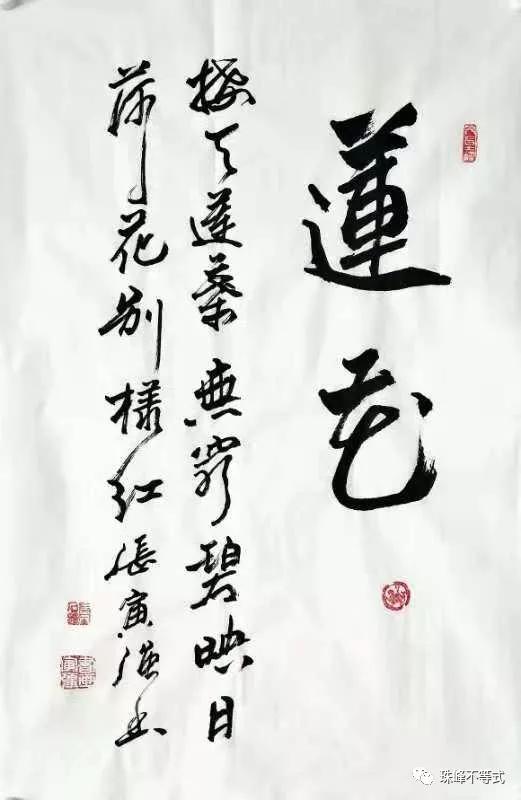 蓮花
接天蓮葉無窮碧映日
荷花别樣红張寅强书
珠峰不等式